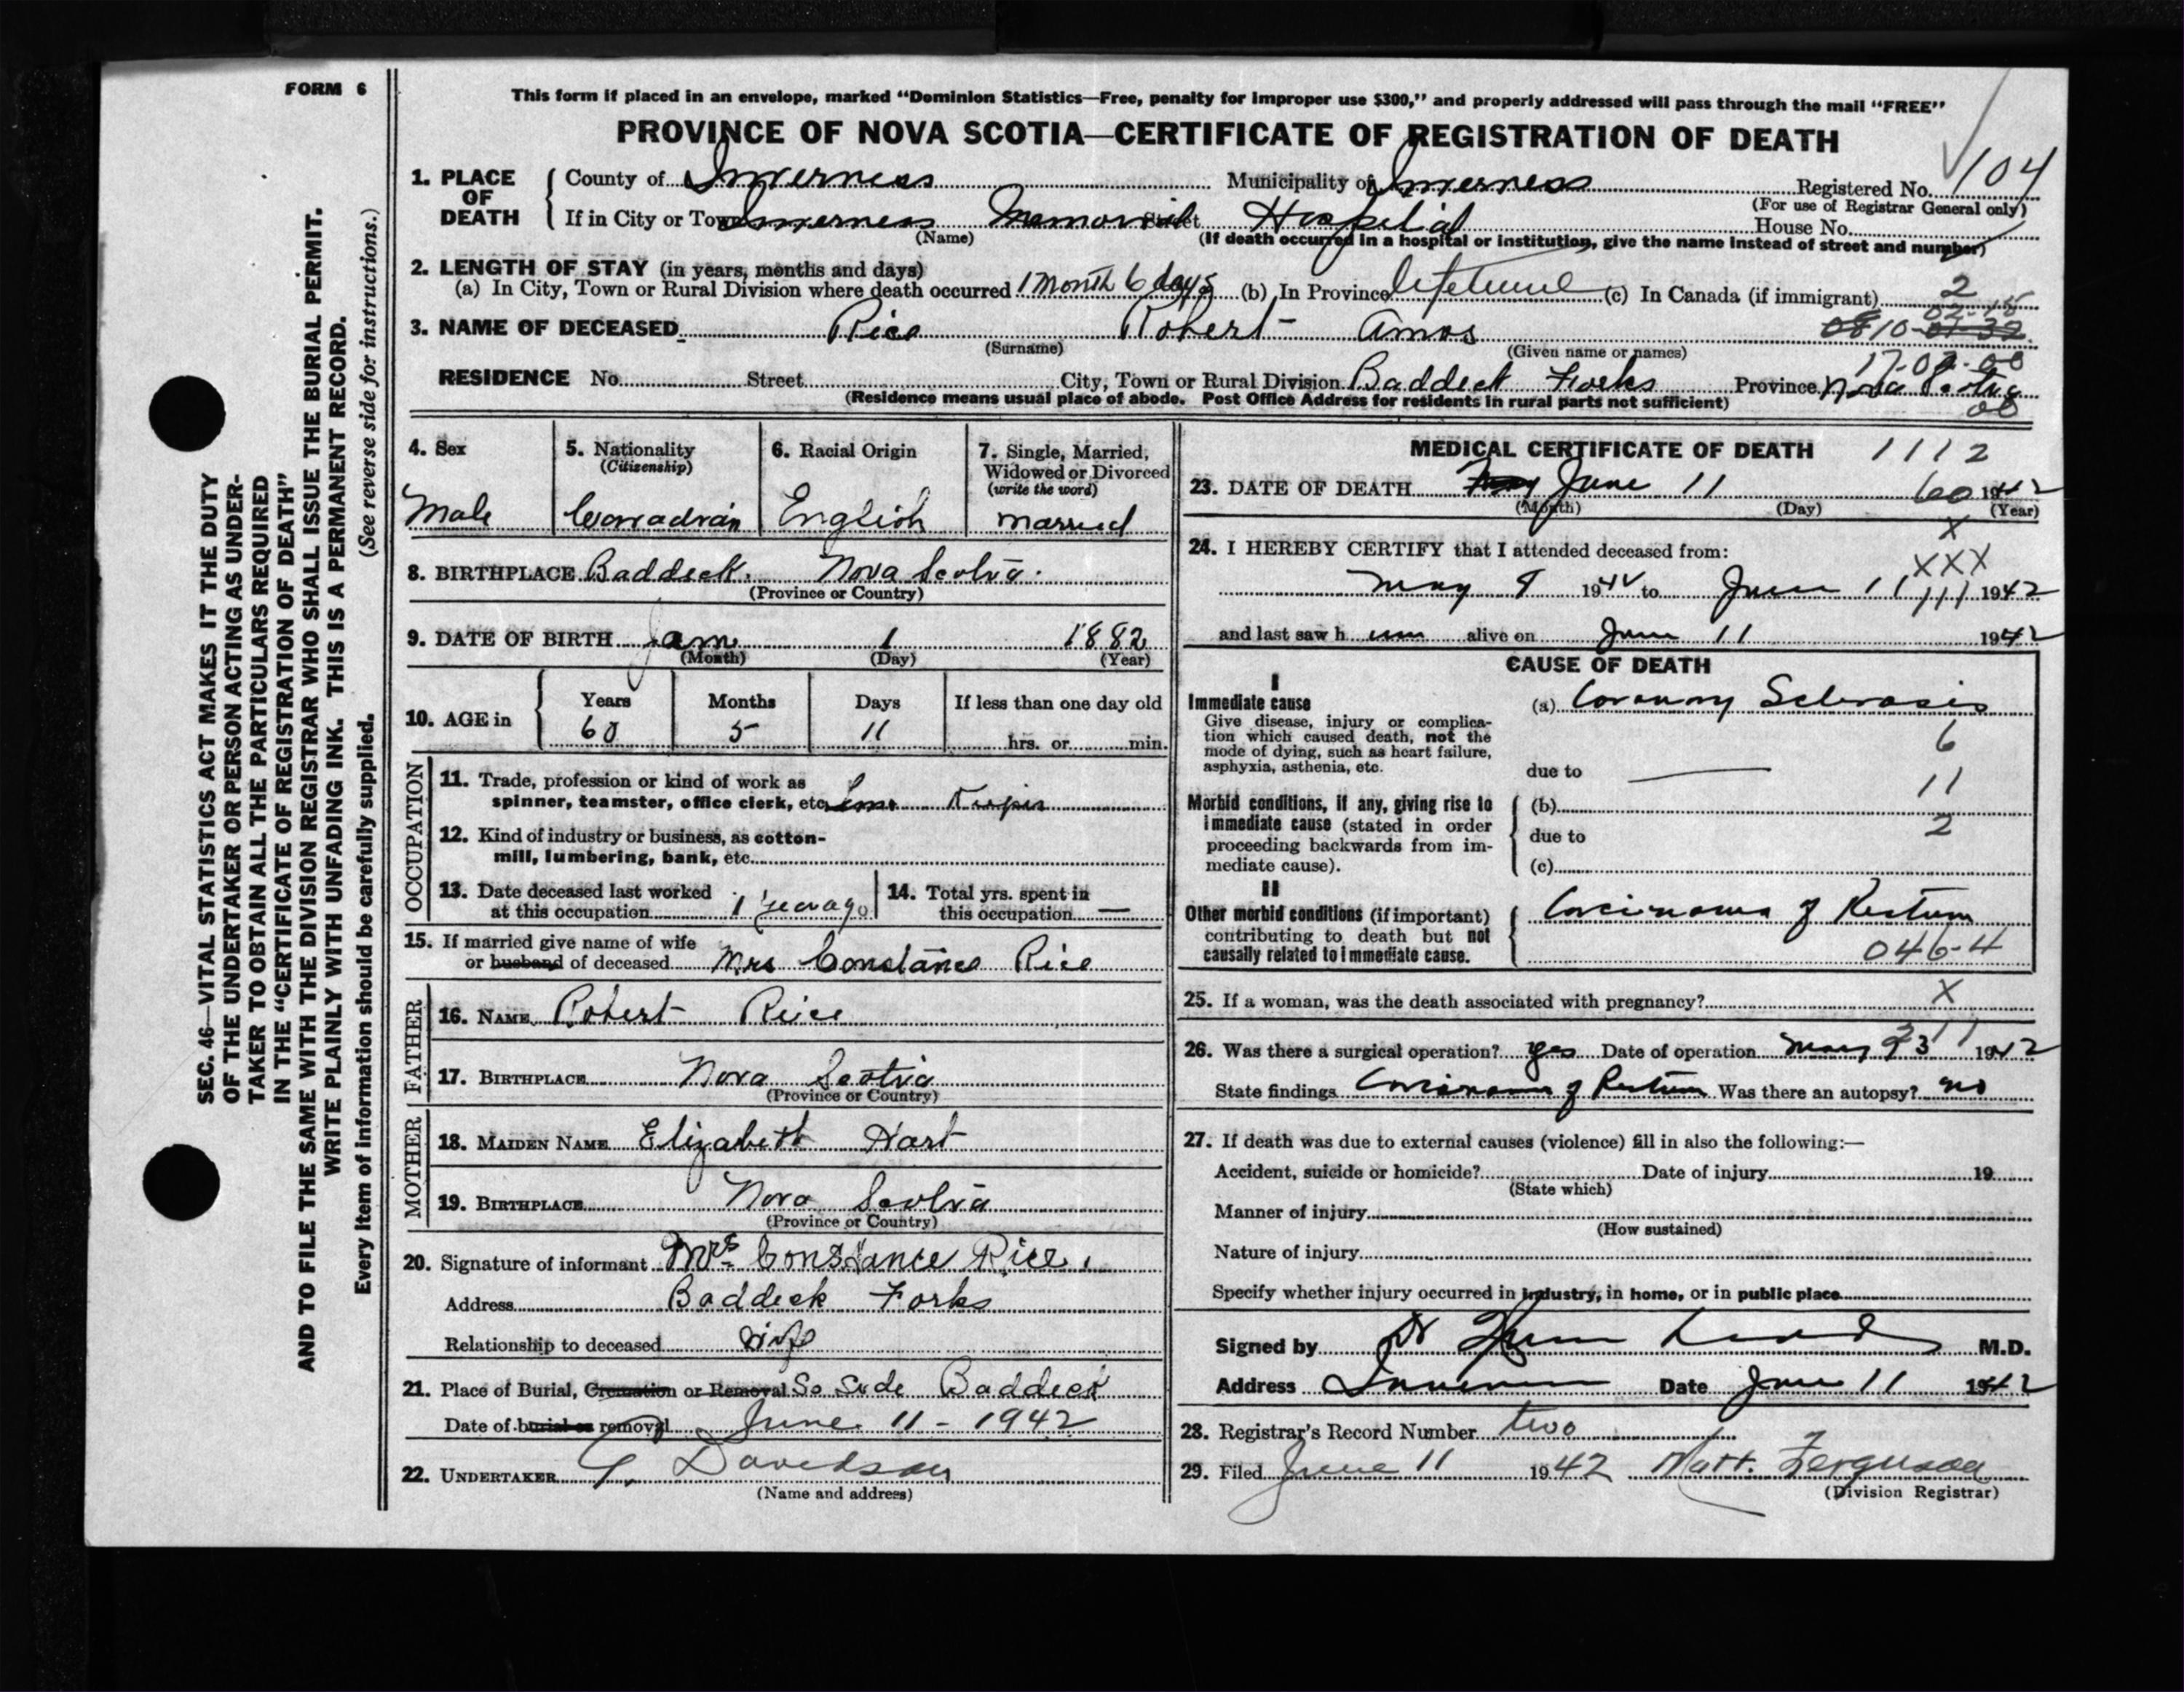 FORM 6
This form if placed in an envelope, marked “Dominion Statistics—Free, penalty for improper use $300,” and properly addressed will pass through the mail “FREE”
PROVINCE OF NOVA SCOTIA—CERTIFICATE OF REGISTRATION OF DEATH
1. PLACE OF DEATH County of Inverness Municipality of Inverness Registered No. 104
(For use of Registrar General only)
If in City or Town Inverness Memorial Street Hospital House No.
(Name) (If death occurred in a hospital or institution, give the name instead of street and number)
2. LENGTH OF STAY (in years, months and days)
(a) In City, Town or Rural Division where death occurred 1 Month 6 days (b) In Province lifetime (c) In Canada (if immigrant) 2
02-15
3. NAME OF DECEASED Rice Robert Amos 0810-01-32
(Surname) (Given name or names)
17-02-00
RESIDENCE No. Street City, Town or Rural Division Baddeck Forks Province Nova Scotia
(Residence means usual place of abode. Post Office Address for residents in rural parts not sufficient) 00
4. Sex Male
5. Nationality (Citizenship) Canadian
6. Racial Origin English
7. Single, Married, Widowed or Divorced (write the word) married
8. BIRTHPLACE Baddeck. Nova Scotia.
(Province or Country)
9. DATE OF BIRTH Jan 1 1882
(Month) (Day) (Year)
10. AGE in Years 60 Months 5 Days 11 If less than one day old
hrs. or min.
OCCUPATION
11. Trade, profession or kind of work as
spinner, teamster, office clerk, etc.
12. Kind of industry or business, as cotton-
mill, lumbering, bank, etc.
13. Date deceased last worked
at this occupation 1 year ago
14. Total yrs. spent in
this occupation —
15. If married give name of wife
or husband of deceased Mrs Constance Rice
FATHER
16. NAME Robert Rice
17. BIRTHPLACE Nova Scotia
(Province or Country)
MOTHER
18. MAIDEN NAME Elizabeth Hart
19. BIRTHPLACE Nova Scotia
(Province or Country)
20. Signature of informant Mrs Constance Rice.
Address Baddeck Forks
Relationship to deceased wife
21. Place of Burial, Cremation or Removal So Side Baddeck
Date of burial or removal June 11 - 1942
22. UNDERTAKER Davidson
(Name and address)
MEDICAL CERTIFICATE OF DEATH 1112
23. DATE OF DEATH May June 11 60 1942
(Month) (Day) (Year)
X
24. I HEREBY CERTIFY that I attended deceased from: XXX
May 9 1942 to June 11 111 1942
and last saw h im alive on June 11 1942
CAUSE OF DEATH
I
Immediate cause
Give disease, injury or complica-
tion which caused death, not the
mode of dying, such as heart failure,
asphyxia, asthenia, etc.
(a) Coronary Sclerosis
6
due to —
11
Morbid conditions, if any, giving rise to
immediate cause (stated in order
proceeding backwards from im-
mediate cause).
(b)
2
due to
(c)
II
Other morbid conditions (if important)
contributing to death but not
causally related to immediate cause.
Carcinoma of Rectum
046-4
25. If a woman, was the death associated with pregnancy? X
26. Was there a surgical operation? yes Date of operation May 1942
State findings Carcinoma of Rectum Was there an autopsy? no
27. If death was due to external causes (violence) fill in also the following:—
Accident, suicide or homicide? Date of injury 19
(State which)
Manner of injury
(How sustained)
Nature of injury
Specify whether injury occurred in industry, in home, or in public place
Signed by Dr M.D.
Address Inverness Date June 11 1942
28. Registrar's Record Number two
29. Filed June 11 1942 Matt. Ferguson
(Division Registrar)
SEC. 46—VITAL STATISTICS ACT MAKES IT THE DUTY
OF THE UNDERTAKER OR PERSON ACTING AS UNDER-
TAKER TO OBTAIN ALL THE PARTICULARS REQUIRED
IN THE “CERTIFICATE OF REGISTRATION OF DEATH”
AND TO FILE THE SAME WITH THE DIVISION REGISTRAR WHO SHALL ISSUE THE BURIAL PERMIT.
WRITE PLAINLY WITH UNFADING INK. THIS IS A PERMANENT RECORD.
Every item of information should be carefully supplied. (See reverse side for instructions.)